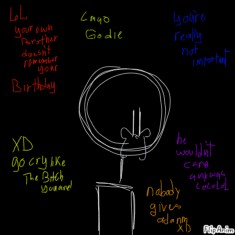 LoL
your own
mother
doesn't
remember
your
Birthday
Lmao
Godie
You're
really
not
important
XD
go cry like
The Bitch
you are
he
wouldn't
care
anyways
nobody
gives
a damn
XD
FlipAnim